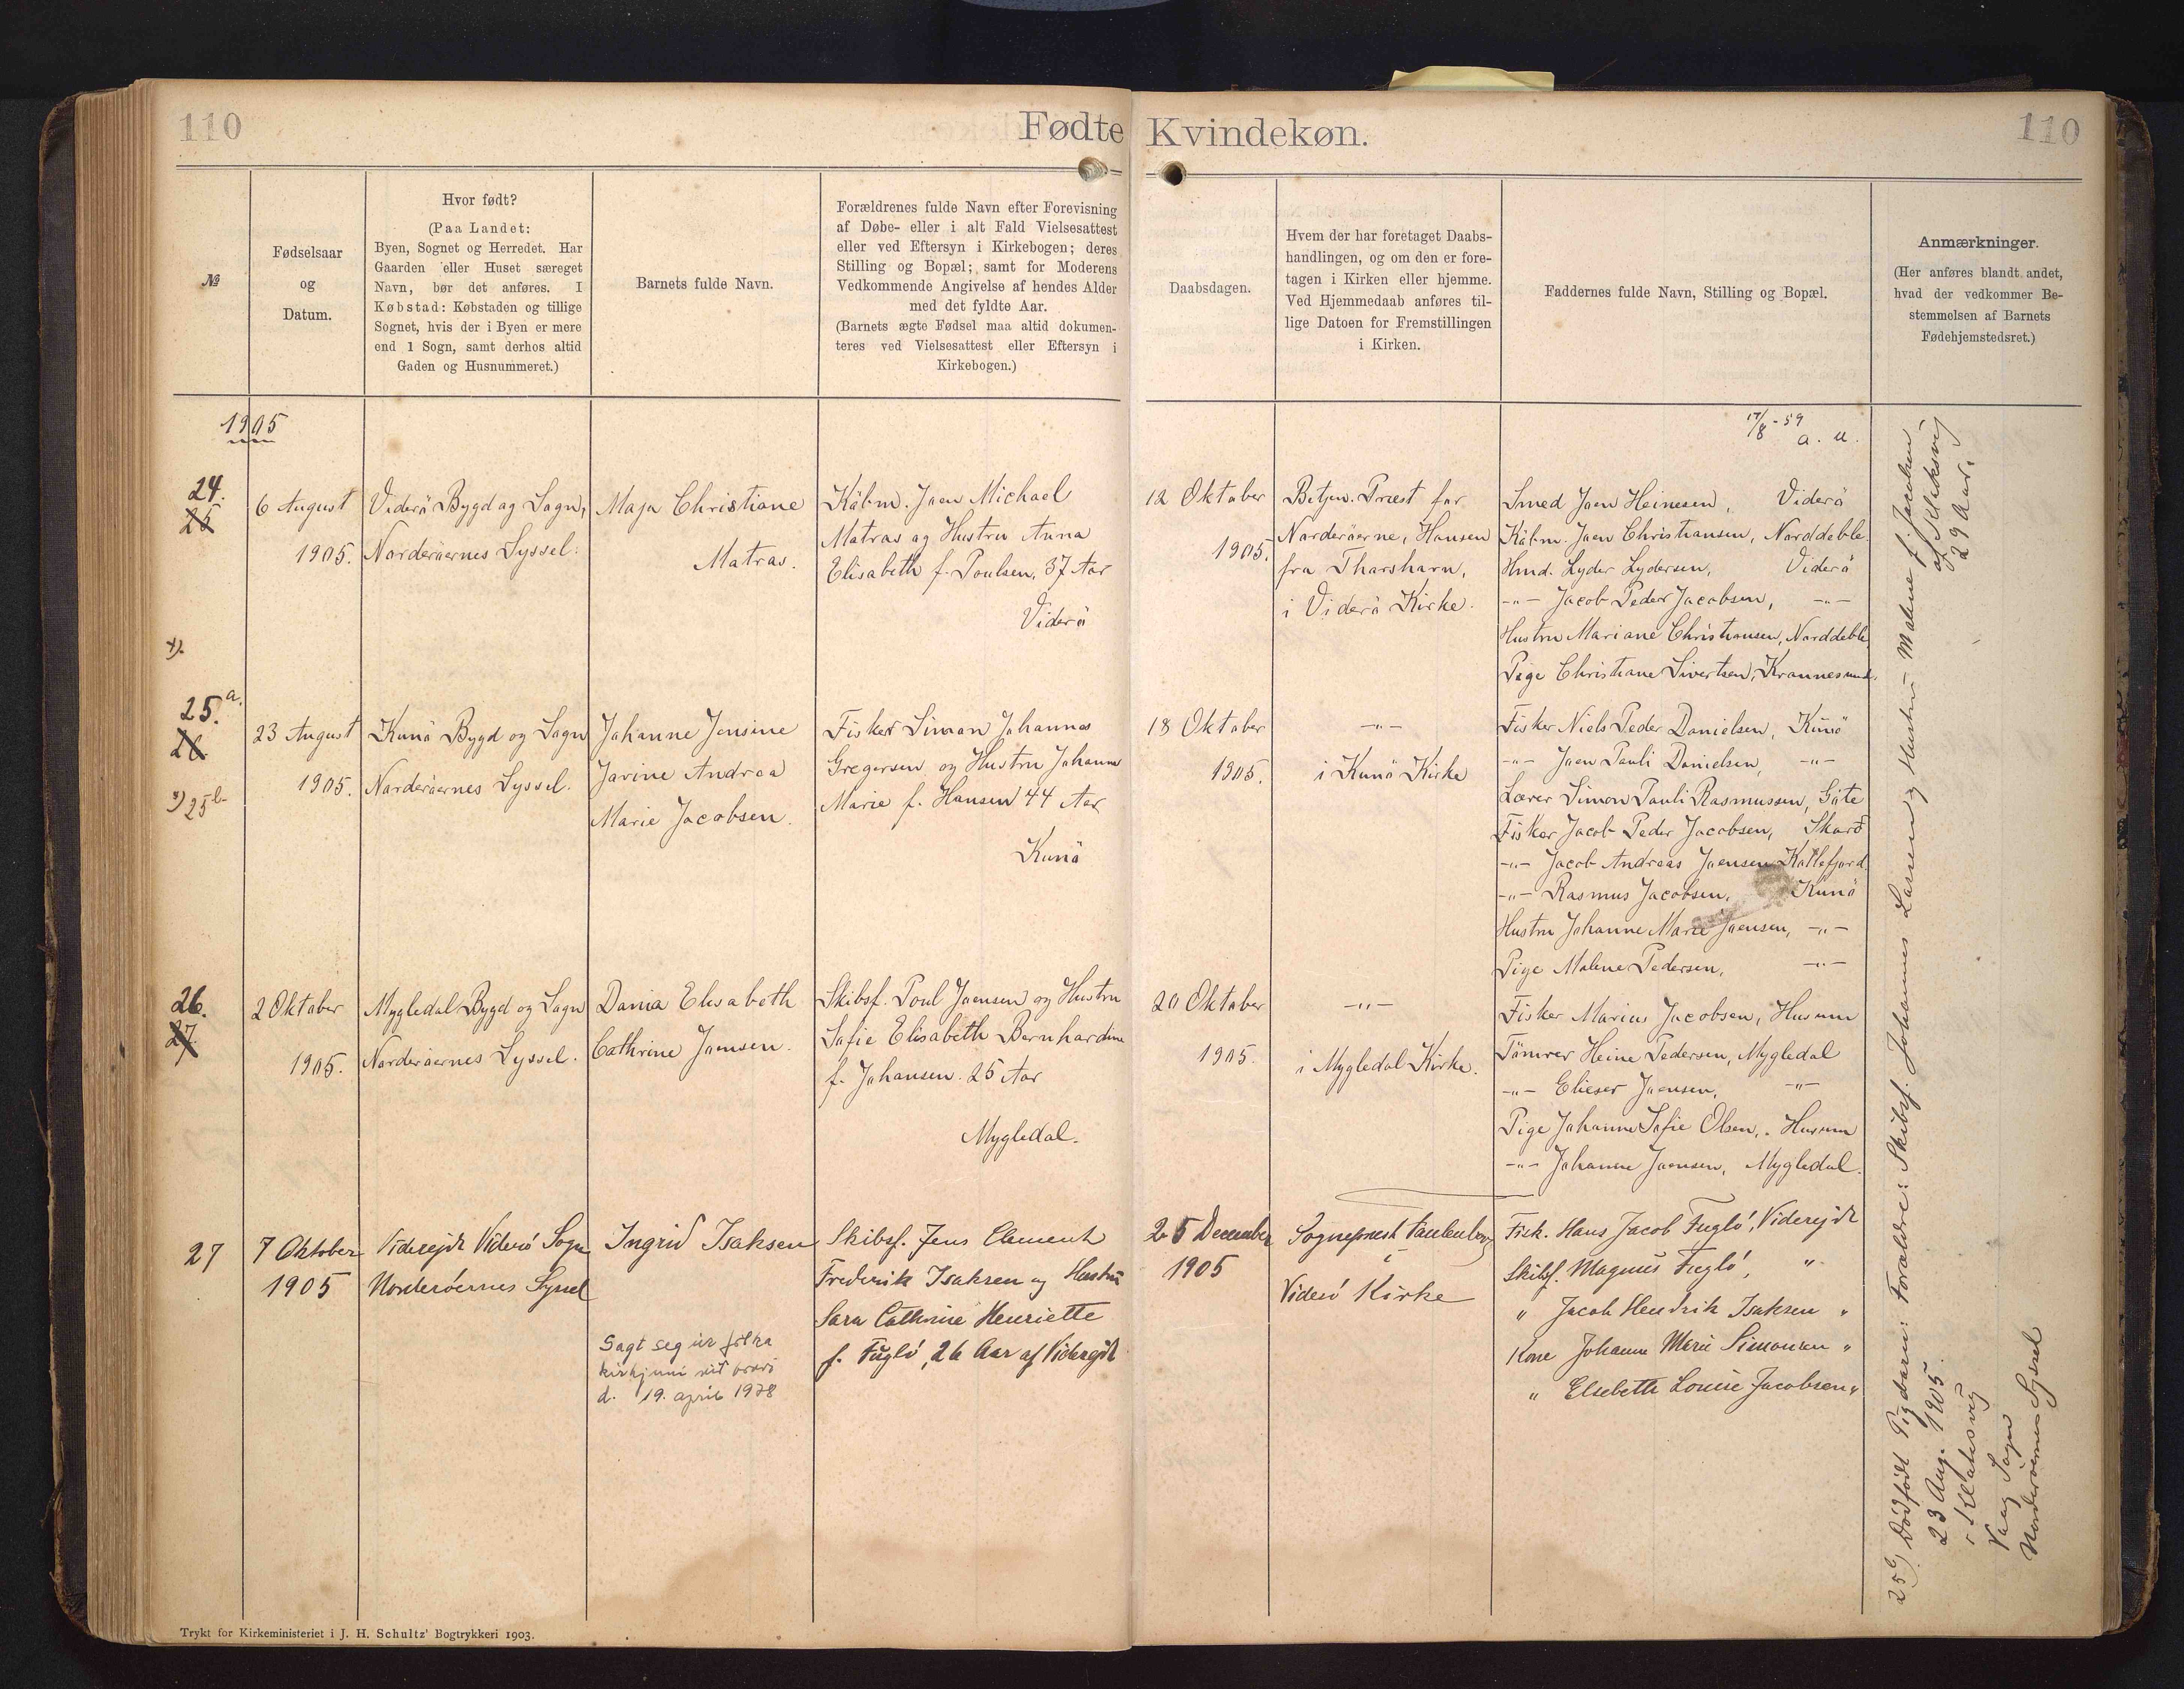 110
Fødte
Kvindekøn.
110
№
Fødselsaar
og
Datum.
Hvor født?
(Paa Landet:
Byen, Sognet og Herredet. Har
Gaarden eller Huset særeget
Navn, bør det anføres. I
Købstad: Købstaden og tillige
Sognet, hvis der i Byen er mere
end 1 Sogn, samt derhos altid
Gaden og Husnummeret.)
Barnets fulde Navn.
Forældrenes fulde Navn efter Forevisning
af Døbe- eller i alt Fald Vielsesattest
eller ved Eftersyn i Kirkebogen; deres
Stilling og Bopæl; samt for Moderens
Vedkommende Angivelse af hendes Alder
med det fyldte Aar.
(Barnets ægte Fødsel maa altid dokumen-
teres ved Vielsesattest eller Eftersyn i
Kirkebogen.)
Daabsdagen.
Hvem der har foretaget Daabs-
handlingen, og om den er fore-
tagen i Kirken eller hjemme.
Ved Hjemmedaab anføres til-
lige Datoen for Fremstillingen
i Kirken.
Faddernes fulde Navn, Stilling og Bopæl.
Anmærkninger.
(Her anføres blandt andet,
hvad der vedkommer Be-
stemmelsen af Barnets
Fødehjemstedsret.)
1905
17/8-59
a. u.
24.
25
6 August
1905.
Viderö Bygd og Sogn,
Norderöernes Syssel.
Maja Christiane
Matras.
Købm. Joen Michael
Matras og Hustru Anna
Elisabeth f. Poulsen, 37 Aar
Viderö
12 Oktober
1905.
Betjen. Præst for
Norderöerne, Hansen
fra Thorshavn,
i Viderö Kirke.
Smed Joen Heinesen, Viderö
Købm. Joen Christiansen, Norddeble.
Hmd. Lyder Lydersen, Viderö
-"- Jacob Peder Jacobsen, -"-
Hustru Mariane Christiansen, Norddeble
Pige Christiane Sivertsen,
25. a.
26
25 b
23 August
1905.
Kunö Bygd og Sogn
Norderöernes Syssel.
Johanne Jensine
Jovine Andrea
Marie Jacobsen.
Fisker Simon Johannes
Gregersen og Hustru Johanne
Marie f. Hansen 44 Aar
Kunö
18 Oktober
1905.
-"-
i Kunö Kirke
Fisker Niels Peder Danielsen, Kunö
-"- Joen Pauli Danielsen, -"-
Lærer Simon Pauli Rasmussen, Göte
Fisker Jacob Peder Jacobsen, Skard
-"- Jacob Andreas Joensen Kollefjord
-"- Rasmus Jacobsen, Kunö
Hustru Johanne Marie Joensen, -"-
Pige Malene Pedersen, -"-
26.
27
2 Oktober
1905.
Mygledal Bygd og Sogn
Norderöernes Syssel.
Dania Elisabeth
Cathrine Joensen.
Skibsf. Poul Joensen og Hustru
Sofie Elisabeth Bernhardine
f. Johansen. 25 Aar
Mygledal.
20 Oktober
1905.
-"-
i Mygledal Kirke.
Fisker Marius Jacobsen, Husum
Tömrer Heine Pedersen, Mygledal
-"- Elieser Joensen, -"-
Pige Johanne Sofie Olsen, Husum
-"- Johanne Joensen, Mygledal.
27
7 Oktober
1905
Viderejde Viderö Sogn
Norderöernes Syssel
Ingrid Isaksen
Sagt seg úr fólka
kirkjuni við brævi
d. 19. april 1978
Skibsf. Jens Clement
Frederik Isaksen og Hustru
Sara Cathrine Henriette
f. Fuglö, 26 Aar af Viderejde
25 December
1905
Sognepræst
i
Viderö Kirke
Fisk. Hans Jacob Fuglö, Viderejde
Skibsf. Magnus Fuglö, "
" Jacob Hendrik Isaksen "
Kone Johanne Marie Simonsen "
" Elsebeth Louise Jacobsen "
25b) Dødfødt Pigebarn: Forældre: Skibsf. Johannes Larsen og Hustru Malene f. Jacobsen
af Klaksvig
29 Aar.
23 Aug. 1905.
i Klaksvig
Vaag Sogn
Norderøernes Syssel
Trykt for Kirkeministeriet i J. H. Schultz' Bogtrykkeri 1903.